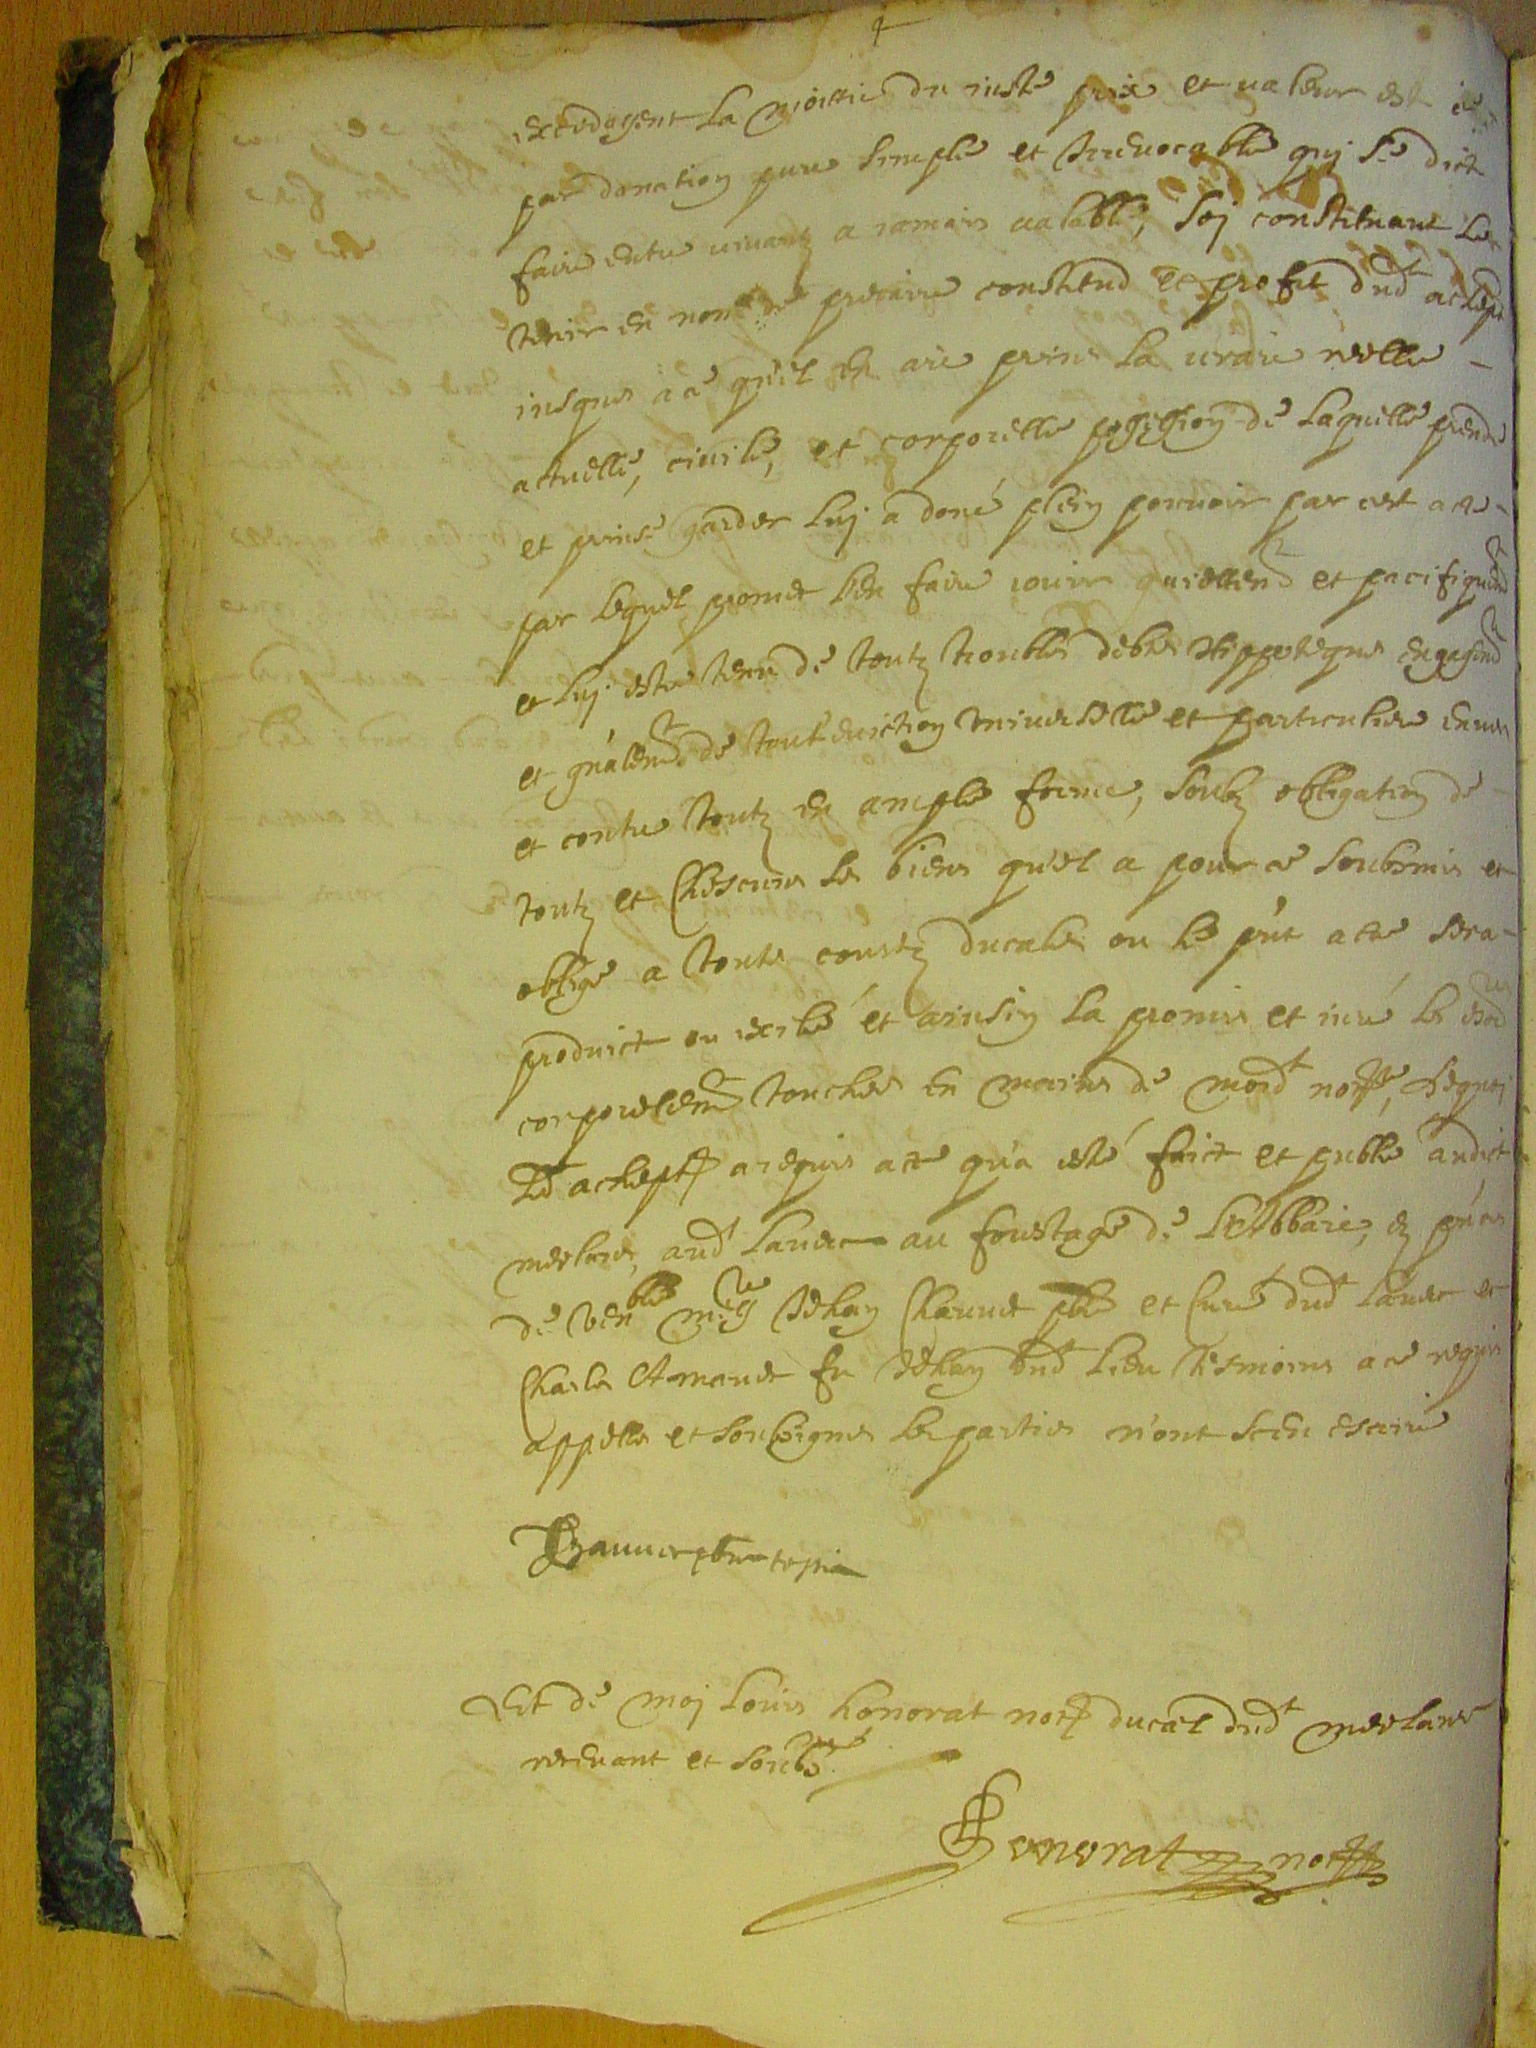 excedassent la moittie du juste prix et valeur est
par donation pure simple et irrevocable qui se dict
faire entre vivantz a jamais valable, soj constituant les
tenir en nom de precaire constitud et profit dud^t achept
jusques a ce qu'il en aie prins la vraie réelle -
actuelle, civile, et corporelle possession de laquelle prendre
et prinse garder luj a doné plein pouvoir par cest acte -
par lequel promet l'en faire jouir quiettem^t et pacifiquem^t
et luj estre tenu de toutz troubles debtes Hippoteques engagem^t
et gñalem^t de tout' eviction universelle et particuliere envers
et contre toutz en ample forme, soubz obligation de -
toutz et Chescuns ses biens qu'il a pour ce soubzmis et
obligé a toute courtz ducales ou le pñt acte sera -
produict ou exibé et ainsin la promis et juré les
corporelem^t touchées en mains de mond^t nott^e, dequoj
Led achept^r a requis acte qu'a esté faict et publié audict
meolans, aud^t Lauvet au foustage de L'Abbaie, en pñce
de ven^ble m^re Jehan Chauvet p̃bre et Curé dud^t Lauvet et
Charles Amavet fu Jehan dud^t lieu tesmoins a ce requis
appelles et soubsignes les parties n'ont sceu escrire
Chauvet p̃bre
Et de moj Louis honorat nott^e ducal dud^t meolans
recevant et soubs^né
Honorat nott^e